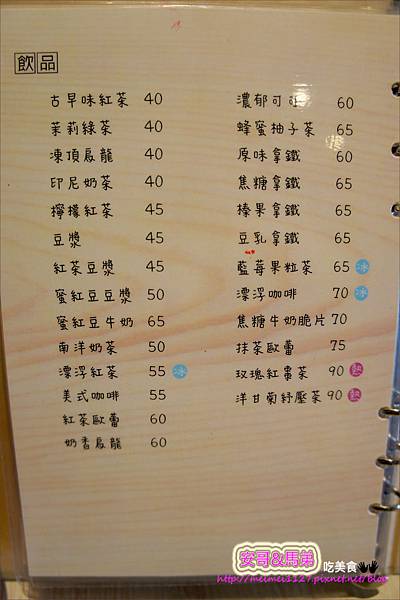 飲品
古早味紅茶 40
茉莉綠茶 40
凍頂烏龍 40
印尼奶茶 40
檸檬紅茶 45
豆漿 45
紅茶豆漿 45
蜜紅豆豆漿 50
蜜紅豆牛奶 65
南洋奶茶 50
漂浮紅茶 55 冰
美式咖啡 55
紅茶歐蕾 60
奶香烏龍 60
濃郁可可 60
蜂蜜柚子茶 65
原味拿鐵 60
焦糖拿鐵 65
榛果拿鐵 65
豆乳拿鐵 65
藍莓果粒茶 65 冰
漂浮咖啡 70 冰
焦糖牛奶脆片 70
抹茶歐蕾 75
玫瑰紅棗茶 90 熱
洋甘菊紓壓茶 90 熱
安哥&馬弟 吃美食
http://meimei1127.pixnet.net/blog